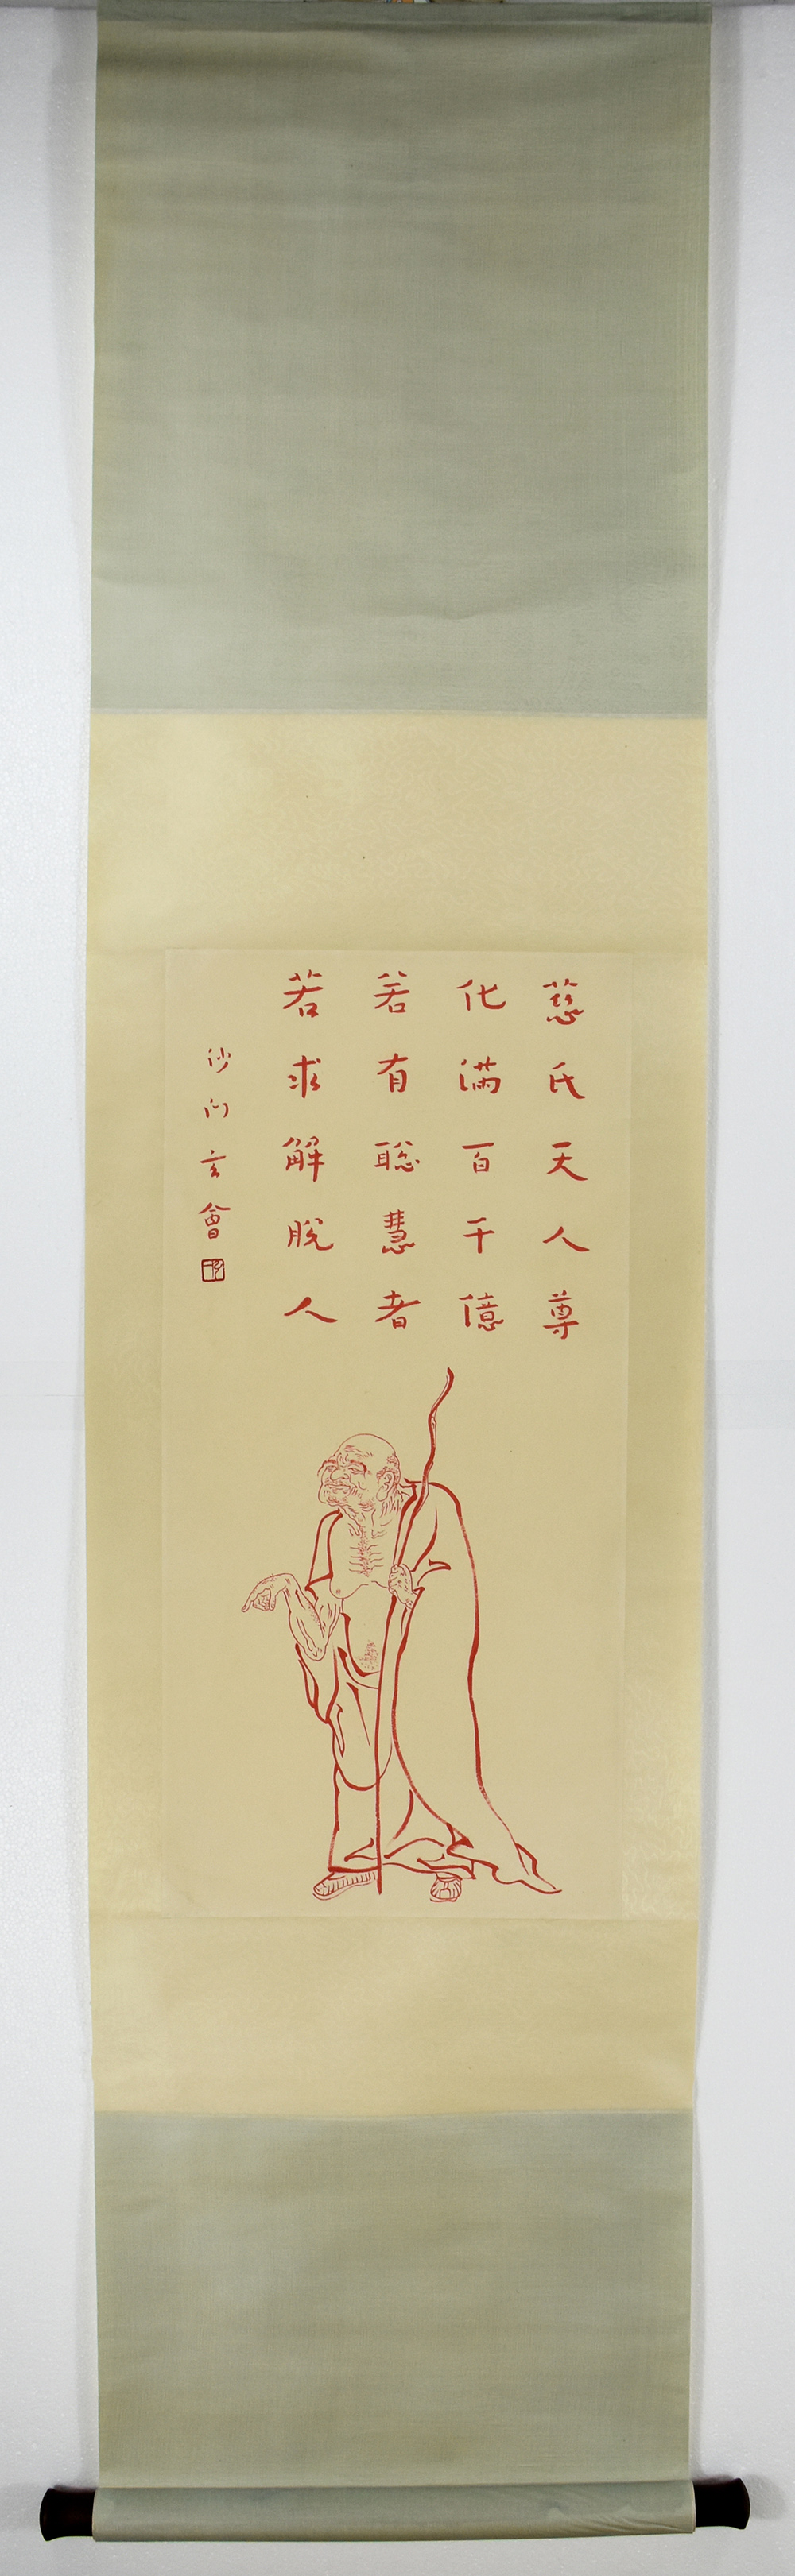 慈氏天人尊
化滿百千億
若有聡慧者
若求解脫人
沙门玄會